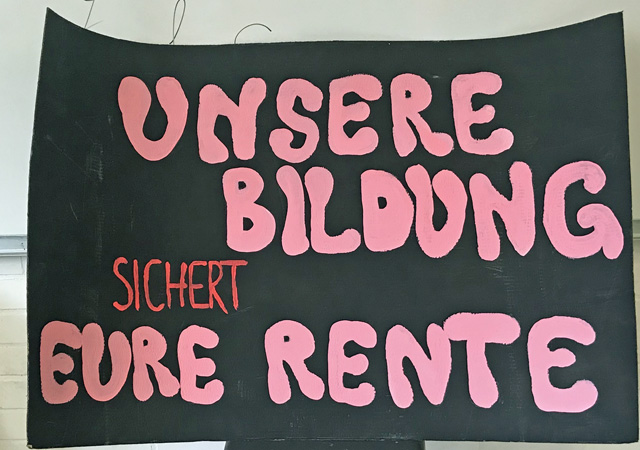 UNSERE
BILDUNG
SICHERT
EURE RENTE